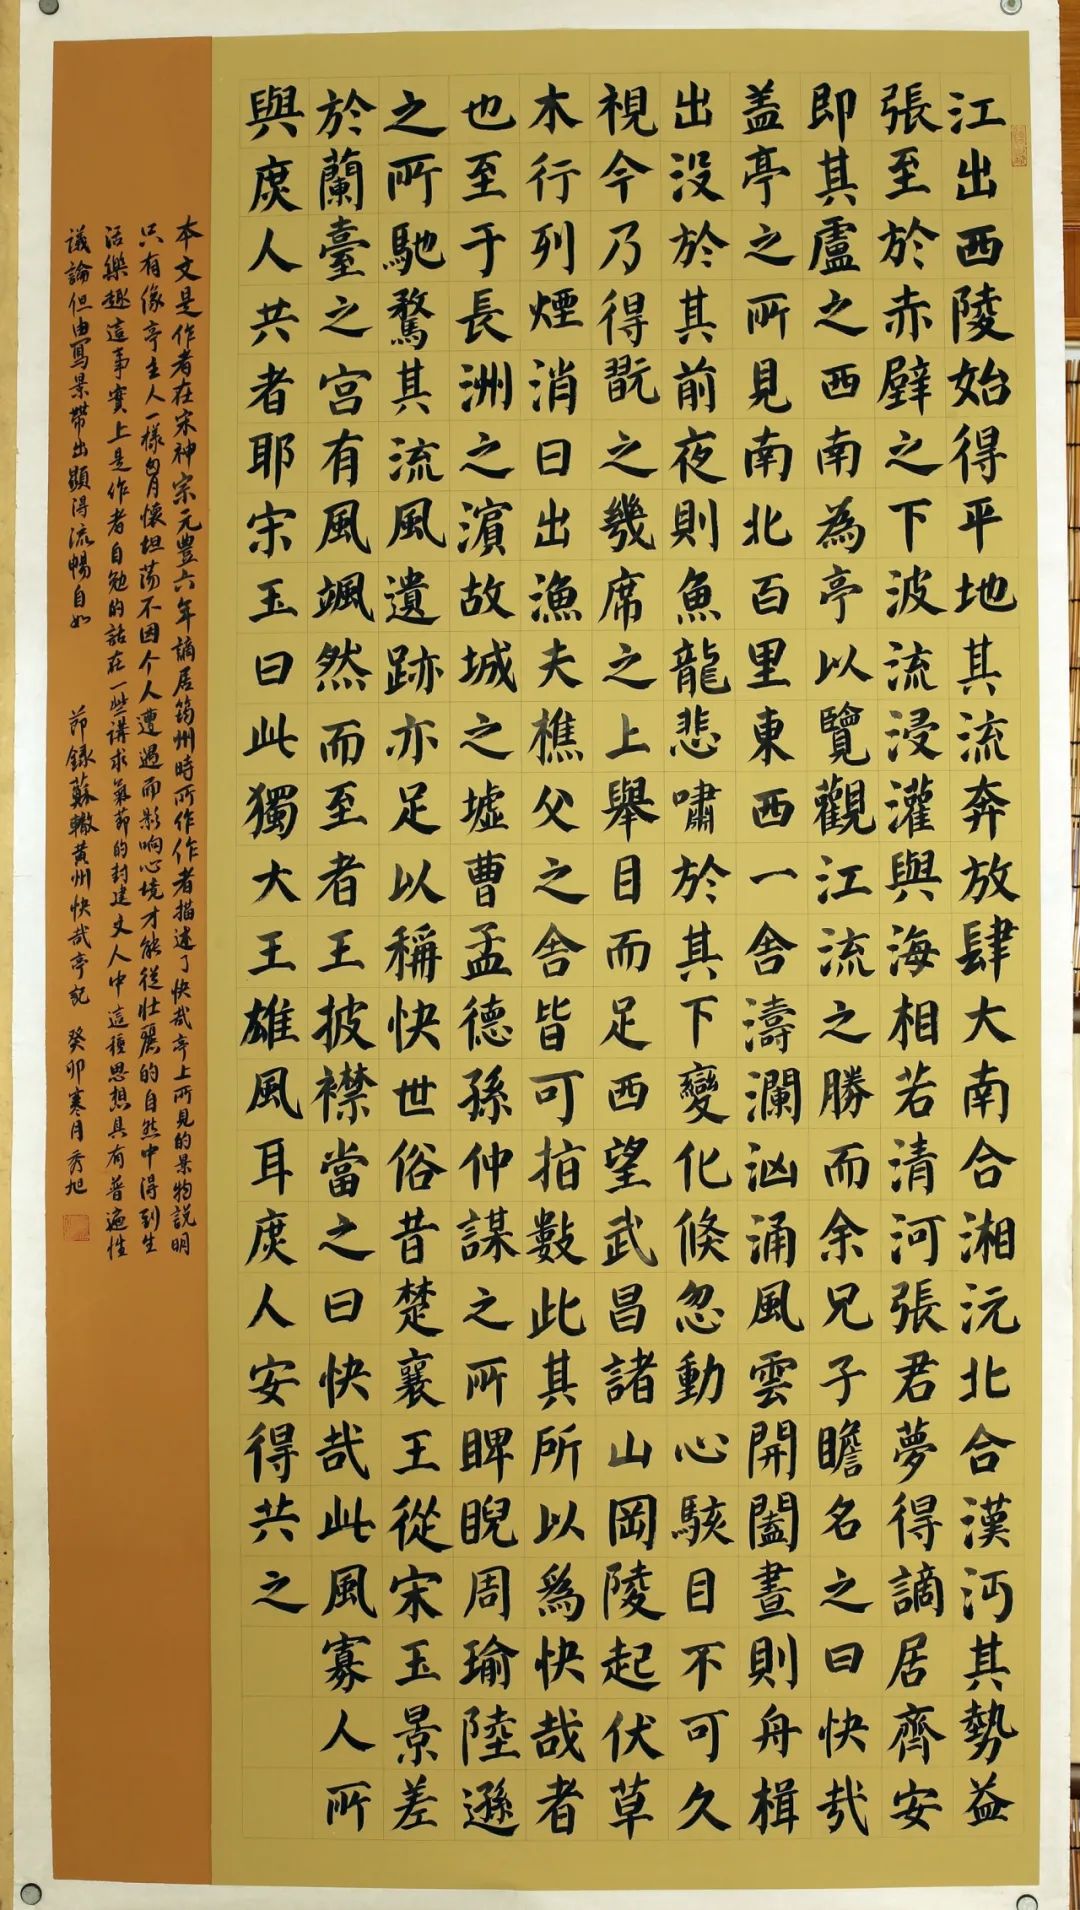 江出西陵始得平地其流奔放肆大南合湘沅北合漢沔其勢益
張至於赤壁之下波流浸灌與海相若清河張君夢得謫居齊安
即其廬之西南為亭以覽觀江流之勝而余兄子瞻名之曰快哉
盖亭之所見南北百里東西一舍濤瀾洶涌風雲開闔晝則舟楫
出没於其前夜則魚龍悲嘯於其下變化倏忽動心駭目不可久
視今乃得翫之几席之上舉目而足西望武昌諸山岡陵起伏草
木行列煙消日出漁夫樵父之舍皆可指數此其所以為快哉者
也至于長洲之濱故城之墟曹孟德孫仲謀之所睥睨周瑜陸遜
之所馳騖其流風遺跡亦足以稱快世俗昔楚襄王從宋玉景差
於蘭臺之宫有風颯然而至者王披襟當之曰快哉此風寡人所
與庶人共者耶宋玉曰此獨大王雄風耳庶人安得共之
本文是作者在宋神宗元豊六年謫居筠州時所作作者描述了快哉亭上所見的景物説明
只有像亭主人一樣胸懷坦荡不因个人遭遇而影响心境才能從壯麗的自然中得到生
活樂趣這事實上是作者自勉的話在一些講求氣節的封建文人中這種思想具有普遍性
議論但由寫景帶出顯得流暢自如 節録蘇轍黄州快哉亭記 癸卯寒月秀旭